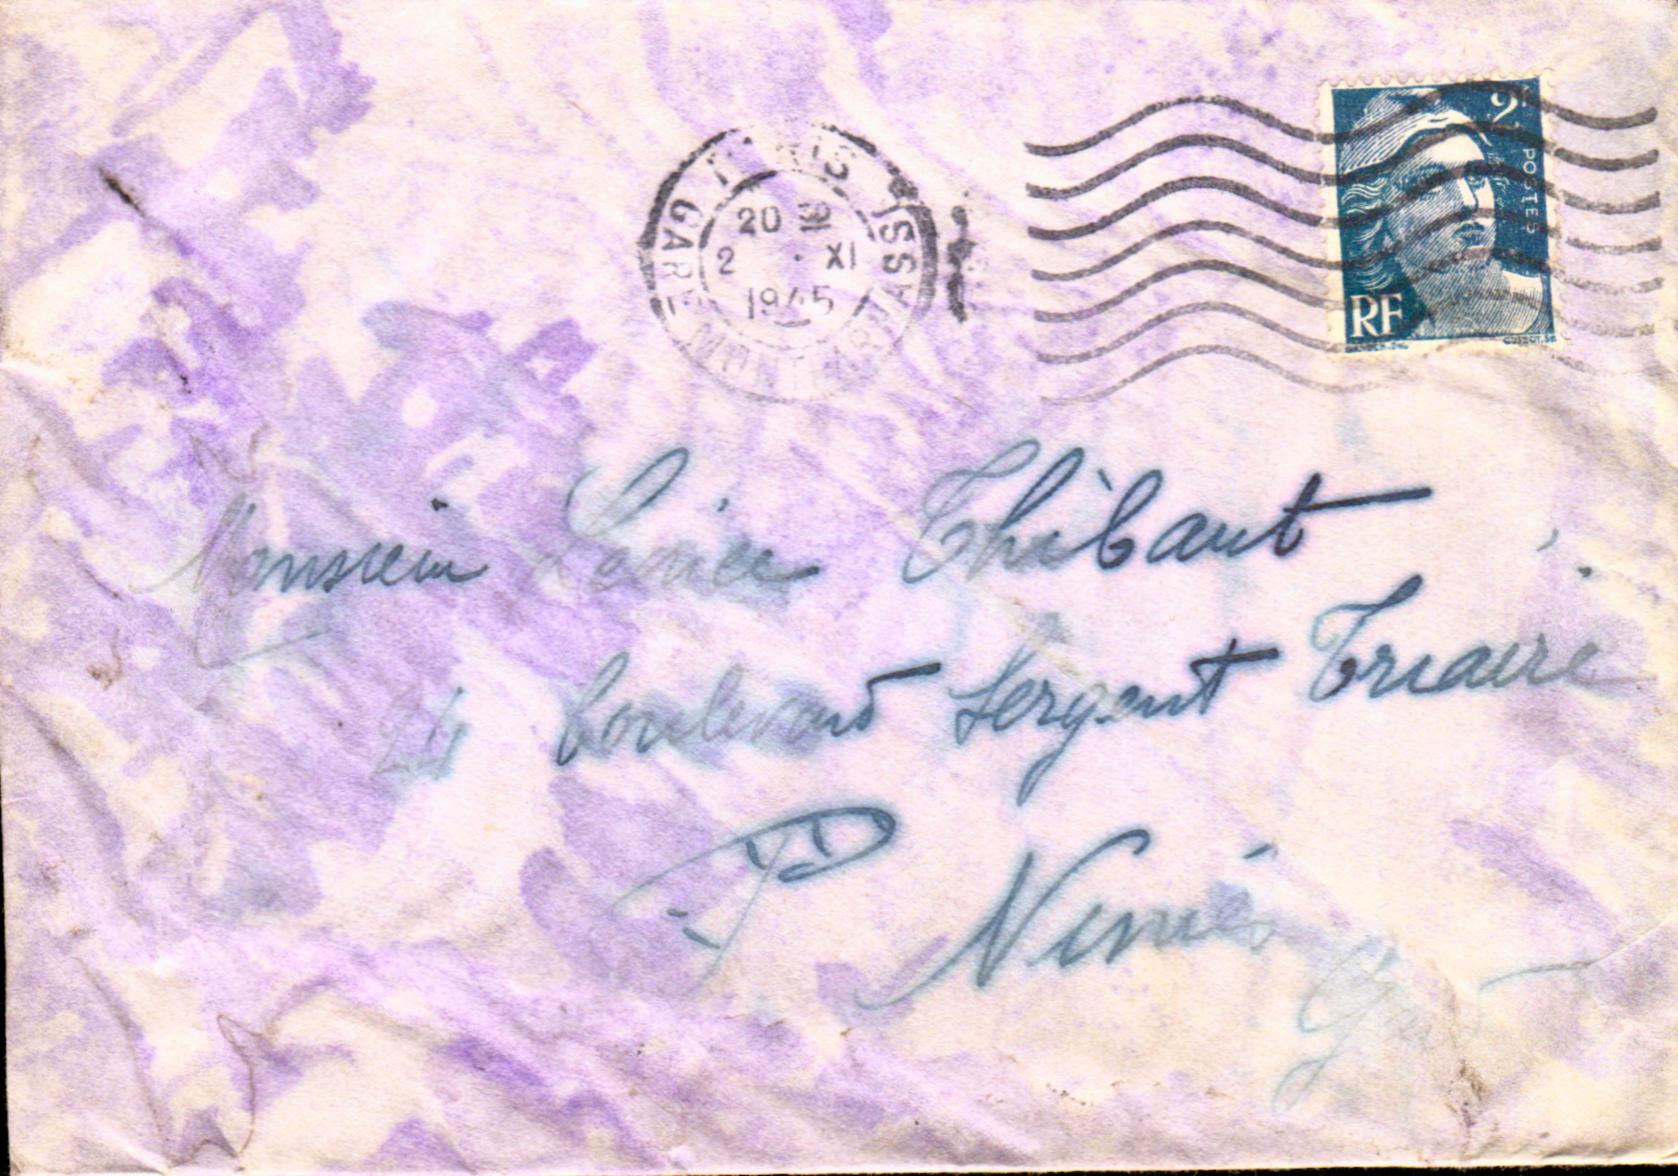 2F
POSTES
RF
PARIS
GARE MONTPARNASSE
20 H
2 · XI
1945
Monsieur Thibaut
24 boulevard Sergent Triaire
Nimes
Gard